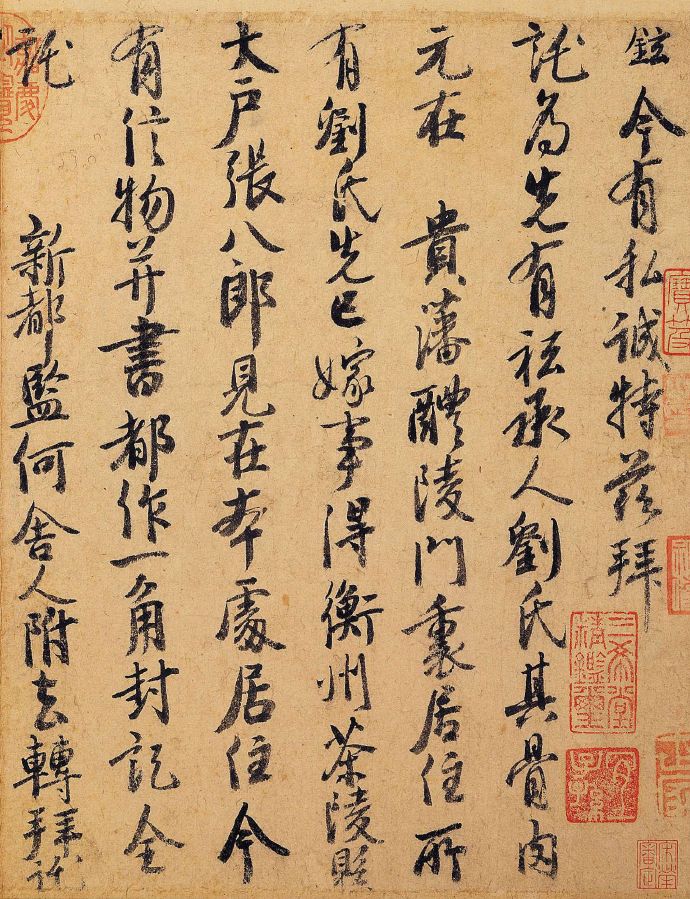 鉉今有私誠特茲拜
託為先有祗承人劉氏其骨肉
元在 貴藩醴陵門裏居住所
有劉氏先已嫁事得衡州茶陵縣
大戶張八郎見在本處居住今
有信物并書都作一角封記全
託
新都監何舍人附去轉拜託
三希堂精鑑璽
宜子孫